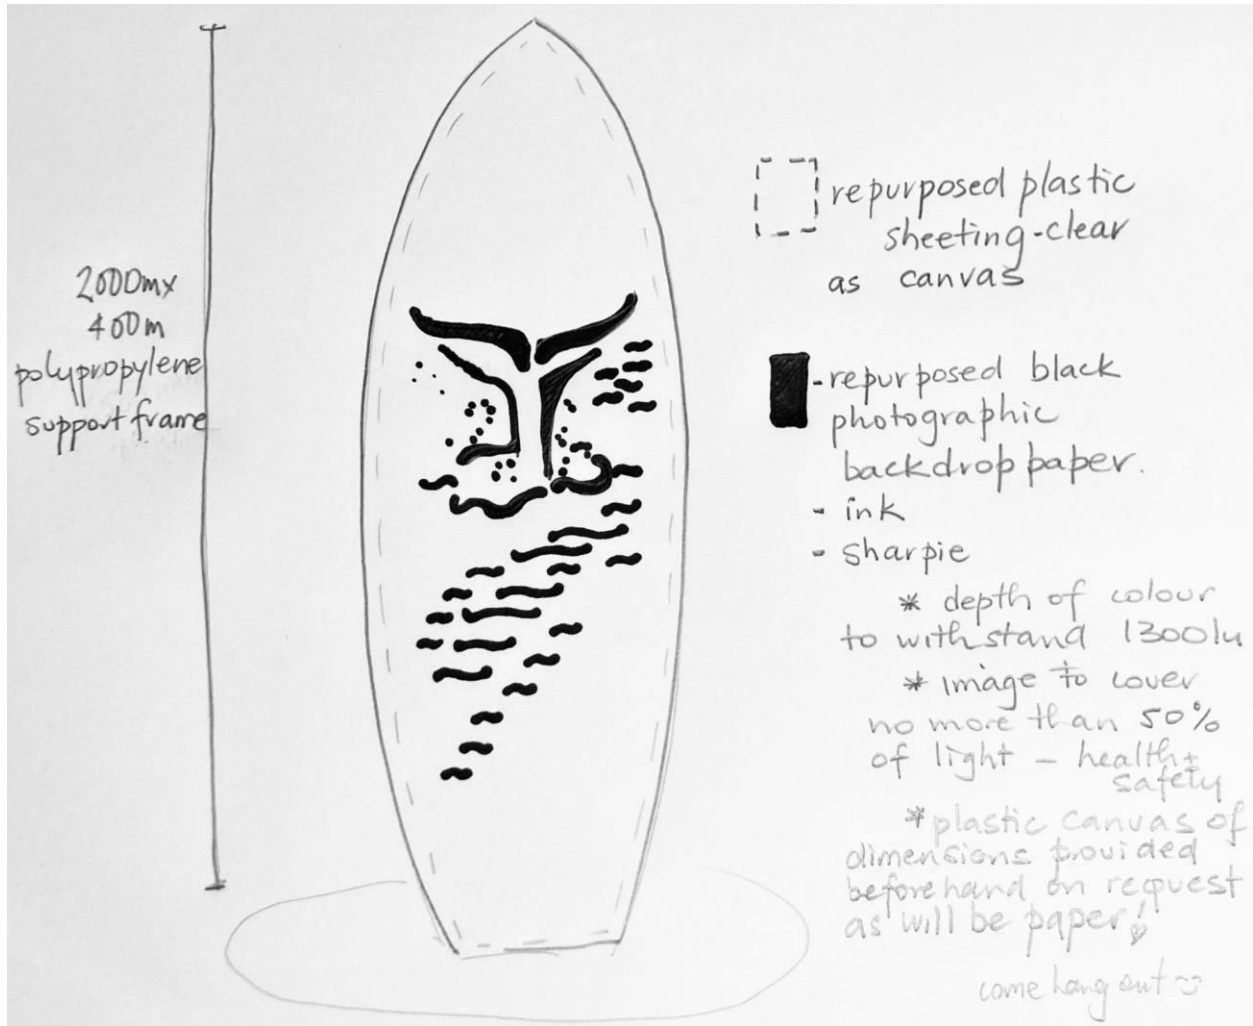 2000mx
400m
polypropylene
support frame
repurposed plastic
sheeting-clear
as canvas
-repurposed black
photographic
backdrop paper.
- ink
- sharpie
* depth of colour
to withstand 1300lu
* image to cover
no more than 50%
of light - health+
safety
*plastic canvas of
dimensions provided
beforehand on request
as will be paper!
come hang out